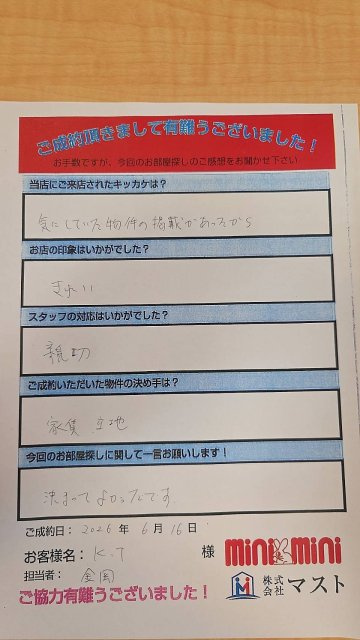 ご成約頂きまして有難うございました！
お手数ですが、今回のお部屋探しのご感想をお聞かせ下さい
当店にご来店されたキッカケは？
気にしていた物件の掲載があったから
お店の印象はいかがでした？
きれい
スタッフの対応はいかがでした？
親切
ご成約いただいた物件の決め手は？
家賃 立地
今回のお部屋探しに関して一言お願いします！
決まってよかったです
ご成約日： 2026 年 6 月 16 日
お客様名： K.T 様
担当者： 金岡
mini mini
株式会社 マスト
ご協力有難うございました！